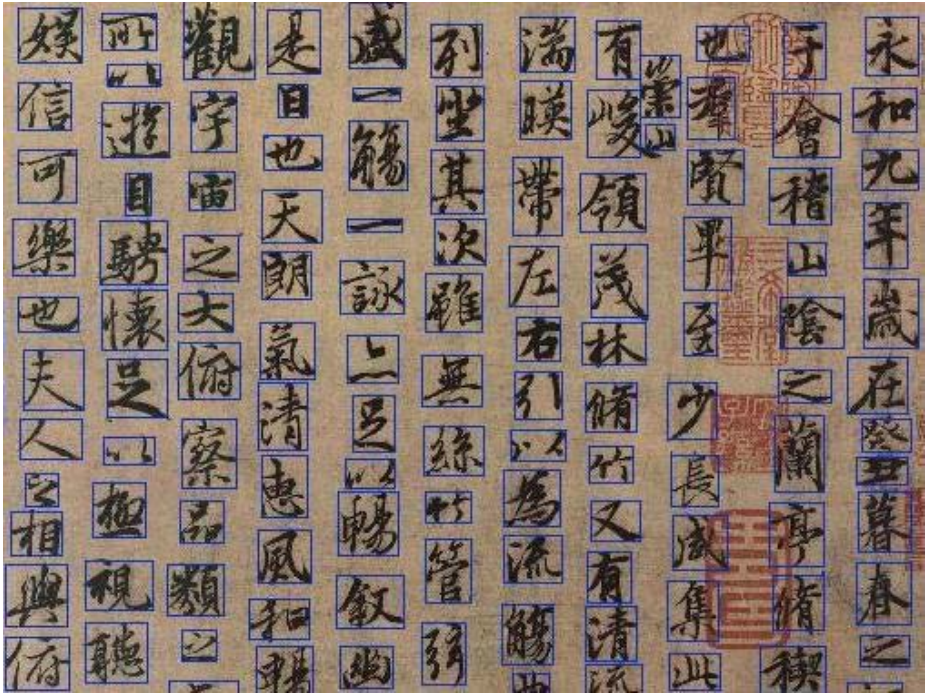 永和九年歲在癸丑暮春之
于會稽山陰之蘭亭脩稧
也羣賢畢至少長咸集此
有崇山峻領茂林脩竹又有清流
湍暎帶左右引以為流觴曲
列坐其次雖無絲竹管弦
盛一觴一詠亦足以暢敘幽
是日也天朗氣清惠風和暢
觀宇宙之大俯察品類之
所以遊目騁懷足以極視聽
娛信可樂也夫人之相與俯